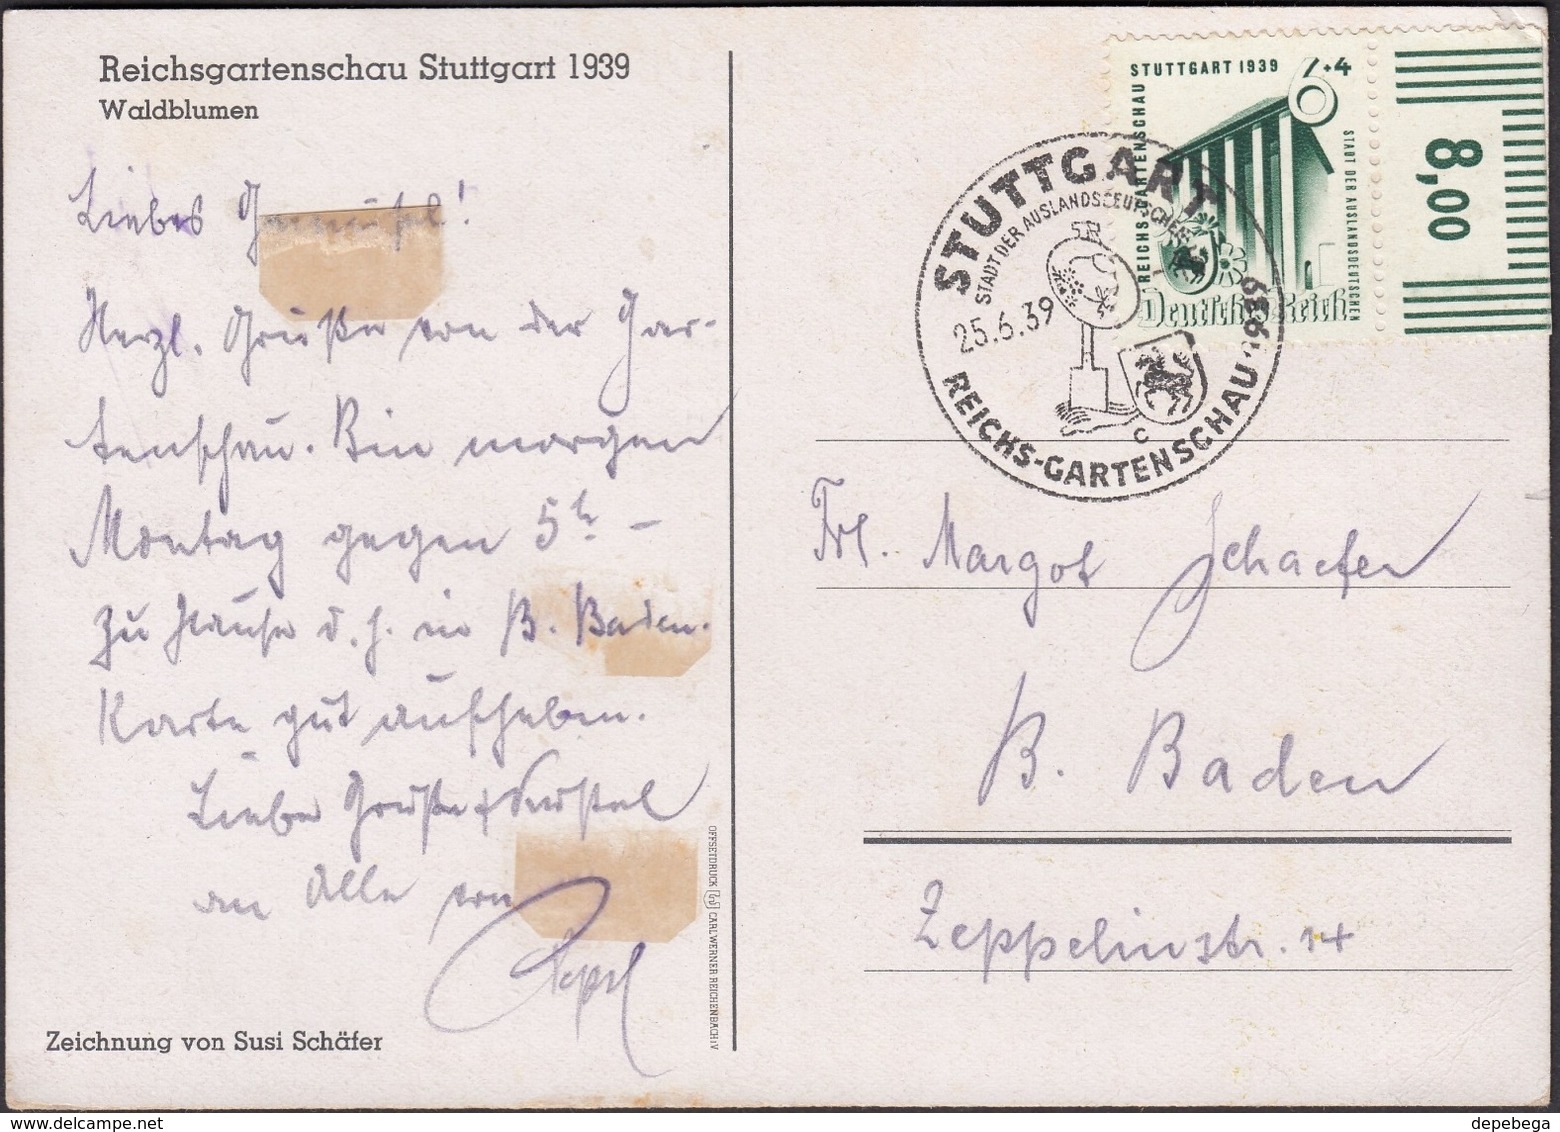 Reichsgartenschau Stuttgart 1939
Waldblumen
Liebes
Herzl. Grüße von der Gar-
tenschau. Bin morgen
Montag gegen 5h –
zu Hause d. h. in B. Baden.
Karte gut aufheben.
Liebe Grüße
an Alle von
Zeichnung von Susi Schäfer
OFFSETDRUCK CARL WERNER REICHENBACH i V
STUTTGART 1939
6+4
REICHSGARTENSCHAU
STADT DER AUSLANDSDEUTSCHEN
Deutsches Reich
8,00
STUTTGART
STADT DER AUSLANDSDEUTSCHEN
25.6.39
C
REICHS-GARTENSCHAU 1939
Frl. Margot Schaefer
B. Baden
Zeppelinstr. 14
depebega